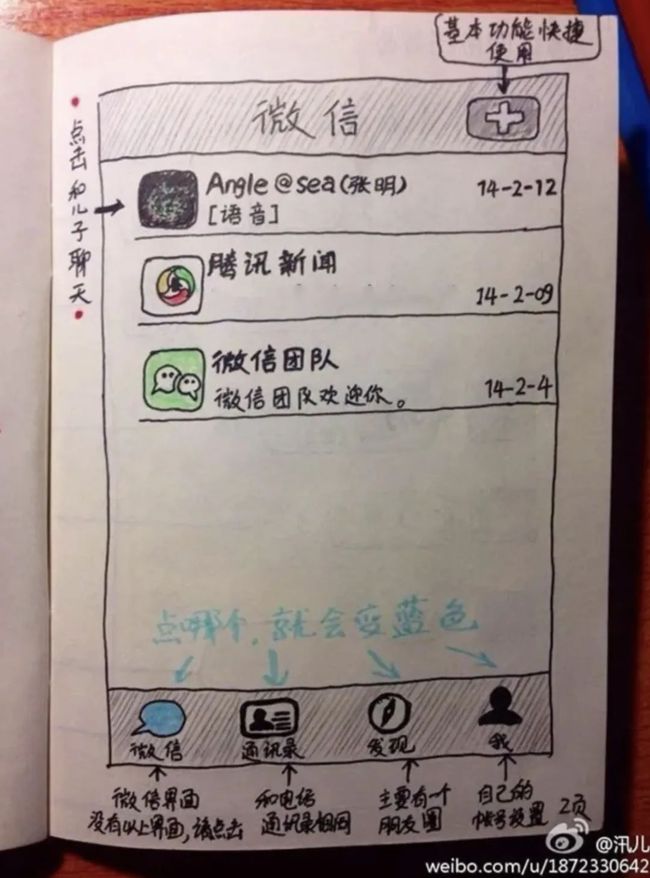 基本功能快捷
使用
微信
点击和儿子聊天
Angle@sea(张明)
14-2-12
[语音]
腾讯新闻
14-2-09
微信团队
微信团队欢迎你。
14-2-4
点哪个,就会变蓝色
微信
通讯录
发现
我
微信界面
没有以上界面,请点击
和电话
通讯录相同
主要有一个
朋友圈
自己的
帐号设置
2页
@汛儿
weibo.com/u/1872330642